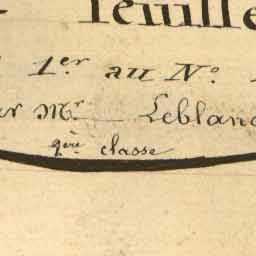 feuille
1er au No.
Mr. Leblanc
classe